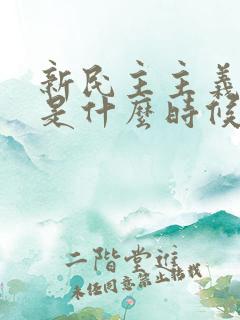 新民主主義
是什麼時候
二階堂進
未經同意禁止轉載